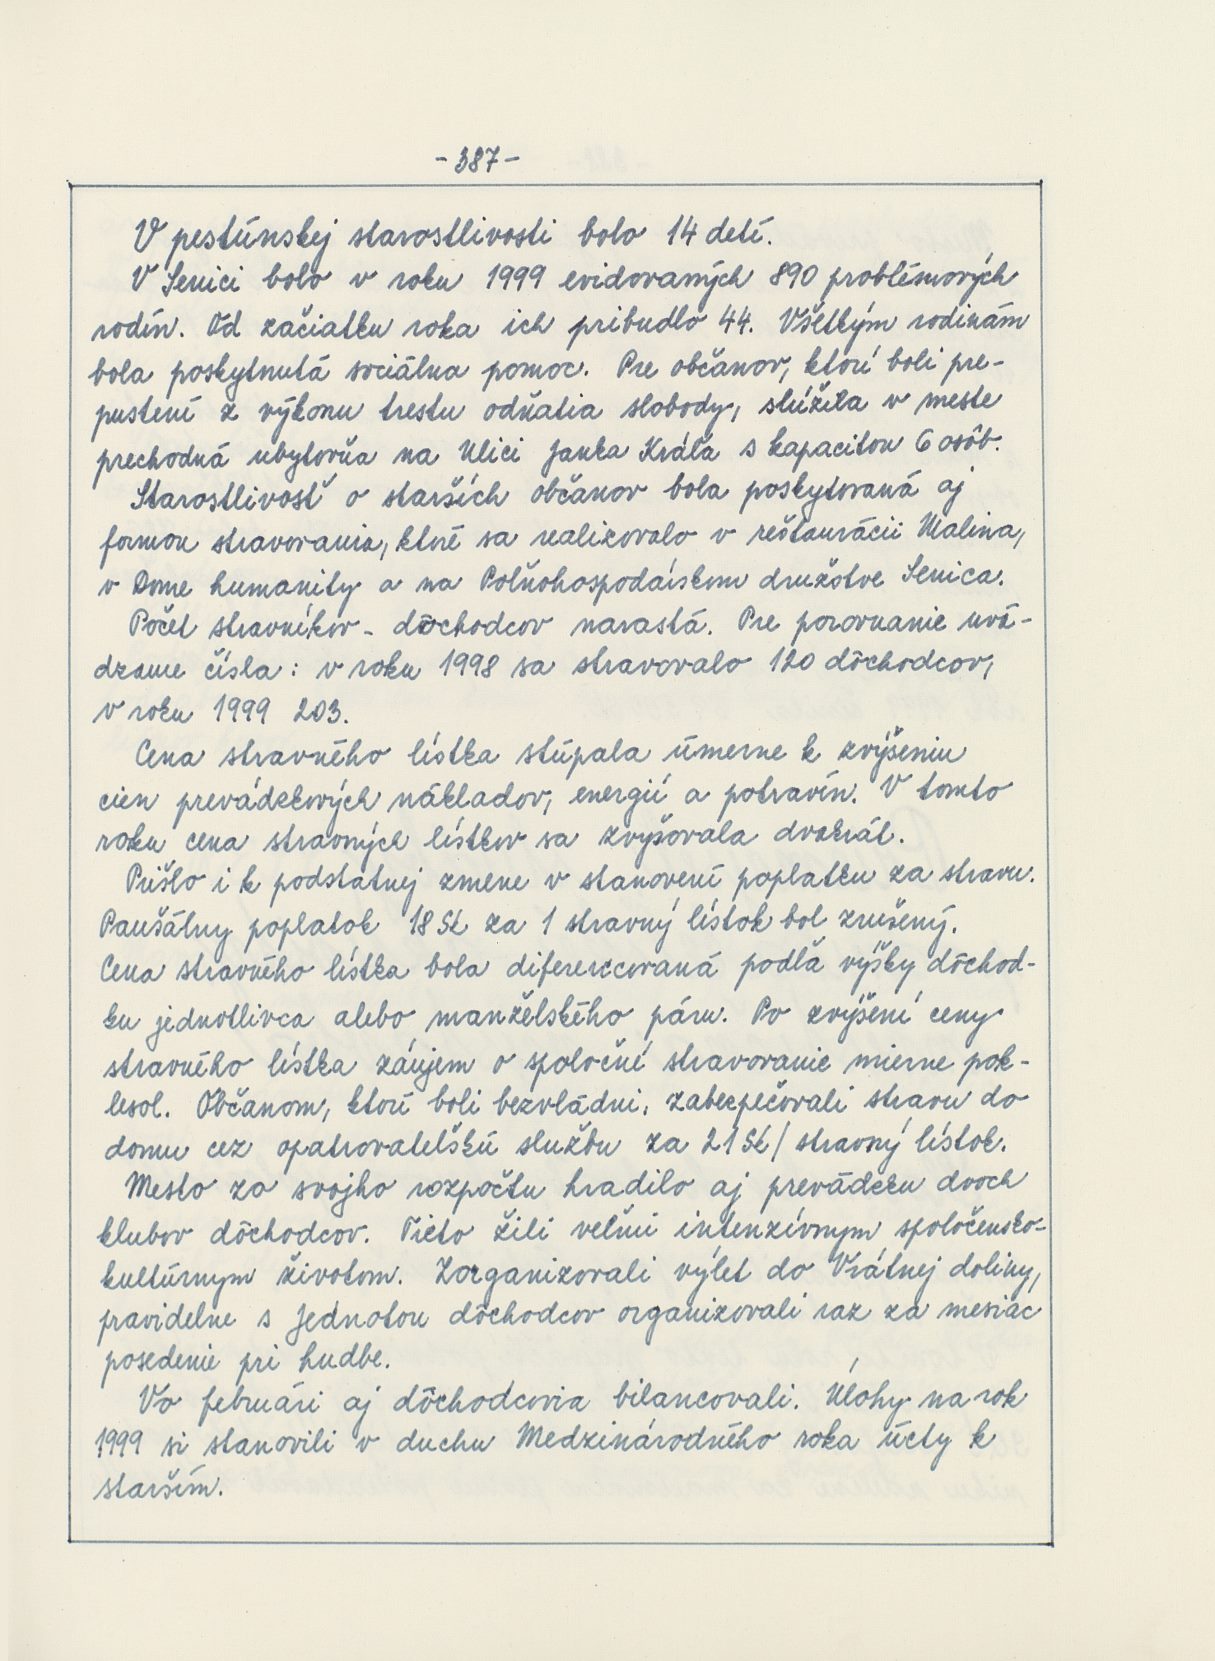 - 387 -
V pestúnskej starostlivosti bolo 14 detí.
V Senici bolo v roku 1999 evidovaných 890 problémových
rodín. Od začiatku roka ich pribudlo 44. Všetkým rodinám
bola poskytnutá sociálna pomoc. Pre občanov, ktorí boli pre-
pustení z výkonu trestu odňatia slobody, slúžila v meste
prechodná ubytovňa na Ulici Janka Kráľa s kapacitou 6 osôb.
Starostlivosť o starších občanov bola poskytovaná aj
formou stravovania, ktoré sa realizovalo v reštaurácii Malina,
v Dome humanity a na Poľnohospodárskom družstve Senica.
Počet stravníkov - dôchodcov narastá. Pre porovnanie uvá-
dzame čísla: v roku 1998 sa stravovalo 120 dôchodcov,
v roku 1999 203.
Cena stravného lístka stúpala úmerne k zvýšeniu
cien prevádzkových nákladov, energií a potravín. V tomto
roku cena stravných lístkov sa zvyšovala dvakrát.
Prišlo i k podstatnej zmene v stanovení poplatku za stravu.
Paušálny poplatok 18 Sk za 1 stravný lístok bol zrušený.
Cena stravného lístka bola diferencovaná podľa výšky dôchod-
ku jednotlivca alebo manželského páru. Po zvýšení ceny
stravného lístka záujem o spoločné stravovanie mierne pok-
lesol. Občanom, ktorí boli bezvládni, zabezpečovali stravu do
domu cez opatrovateľskú službu za 21 Sk/ stravný lístok.
Mesto zo svojho rozpočtu hradilo aj prevádzku dvoch
klubov dôchodcov. Tieto žili veľmi intenzívnym spoločensko-
kultúrnym životom. Zorganizovali výlet do Vrátnej doliny,
pravidelne s Jednotou dôchodcov organizovali raz za mesiac
posedenie pri hudbe.
Vo februári aj dôchodcovia bilancovali. Úlohy na rok
1999 si stanovili v duchu Medzinárodného roka úcty k
starším.